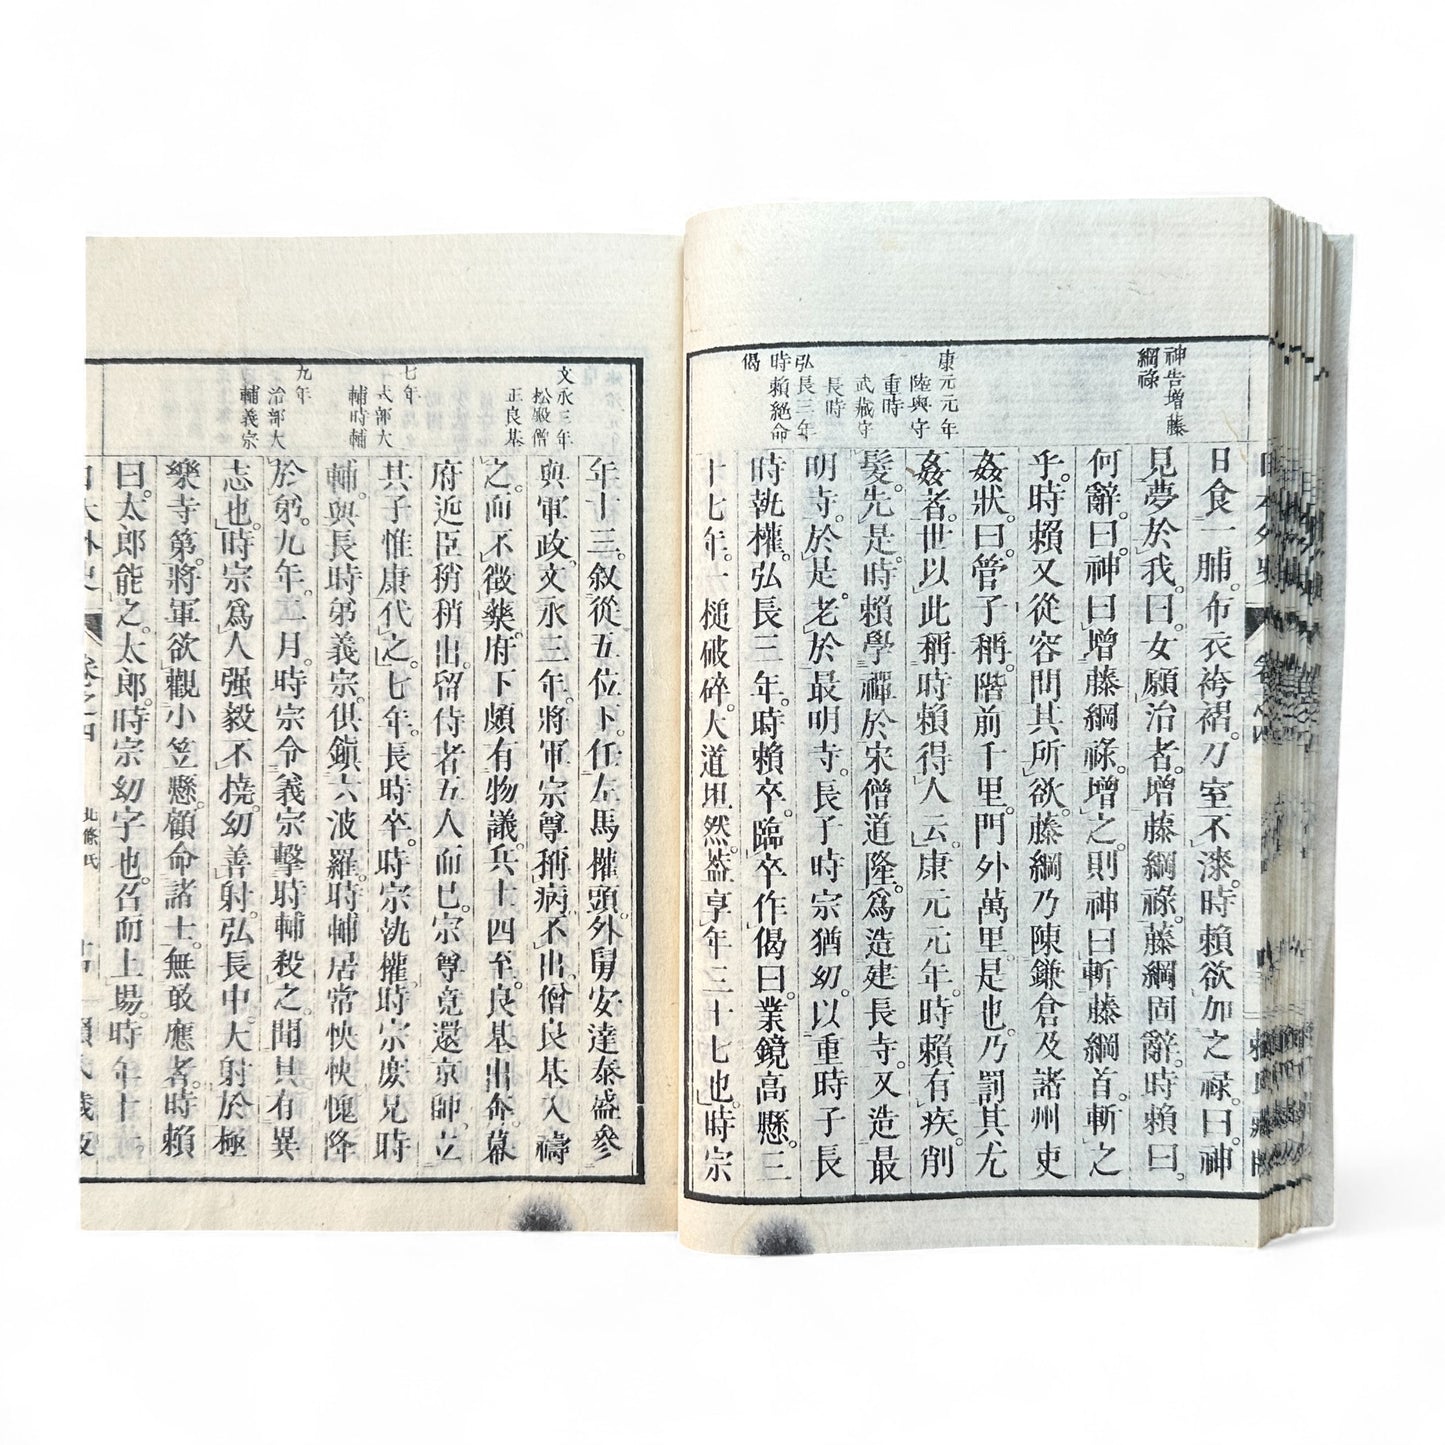 神告增藤
綱祿
康元元年
陸奧守
重時
武藏守
長時
弘長三年
時賴絶命
偈
日食一脯。布衣袴褶。刀室不漆。時賴欲加之祿。曰。神
見夢於我。曰。女願治者。增藤綱祿。藤綱固辭。時賴曰。
何辭。曰。神曰增藤綱祿。增之。則神曰斬藤綱首。斬之
乎。時賴又從容問其所欲。藤綱乃陳鎌倉及諸州吏
姦狀曰。管子稱。階前千里。門外萬里。是也。乃罰其尤
姦者。世以此稱時賴得人云。康元元年。時賴有疾。削
髮。先是。時賴學禪於宋僧道隆。爲造建長寺。又造最
明寺。於是。老於最明寺。長子時宗猶幼。以重時子長
時執權。弘長三年。時賴卒。臨卒作偈曰。業鏡高懸。三
十七年。一槌破碎。大道坦然。蓋享年三十七也。時宗
文永三年
松殿僧
正良基
七年
式部大
輔時輔
九年
治部大
輔義宗
年十三。敘從五位下。任左馬權頭。外舅安達泰盛參
與軍政。文永三年。將軍宗尊稱病。不出。僧良基入禱
之。而不徵藥。府下頗有物議。兵士四至。良基出奔。幕
府近臣。稍稍出。留侍者五人而已。宗尊竟還京師。立
其子惟康代之。七年。長時卒。時宗執權。時宗庶兄時
輔。與長時弟義宗。俱鎭六波羅。時輔居常怏怏愧降
於弟。九年。二月。時宗令義宗擊時輔殺之。聞其有異
志也。時宗爲人强毅不撓。幼善射。弘長中。大射於極
樂寺第。將軍欲觀小笠懸。顧命諸士。無敢應者。時賴
曰。太郎能之。太郎。時宗幼字也。召而上場。時年十一
日本外史 卷之四 北條氏